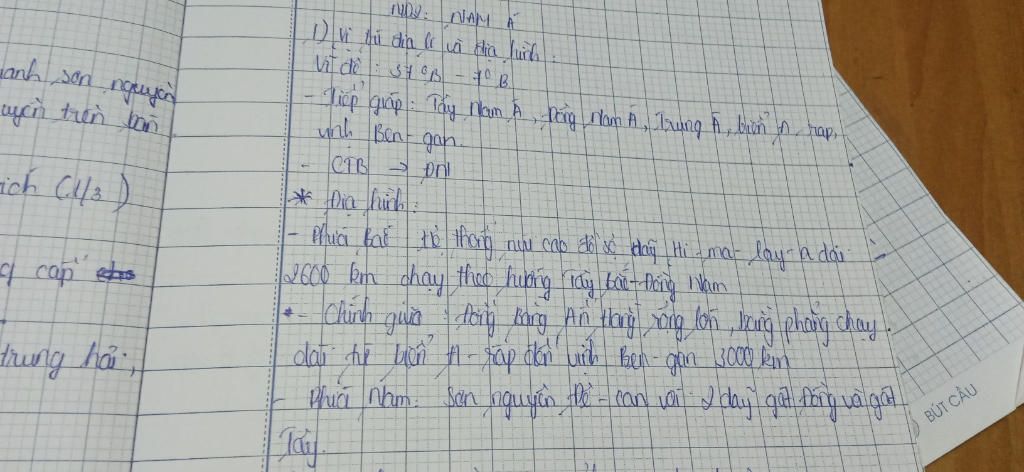 anh sơn nguyên
uyên trên bán
ích (1/3)
g cấp
trung hải;
NDY: NAM Á
1) Vị trí địa lí và địa hình.
Vĩ độ: 37°B - 7°B
- Tiếp giáp: Tây Nam Á, Đông Nam Á, Trung Á, biển A rap,
vịnh Ben-gan.
- CTB → ĐN
* Địa hình:
- Phía Bắc hệ thống núi cao đồ sộ dãy Hi-ma-lay-a dài
2600 km chạy theo hướng Tây bắc-Đông Nam
*- Chính giữa: đồng bằng Ấn Hằng rộng lớn, bằng phẳng chạy
dài từ biển A-rap đến vịnh Ben-gan 3000 km
- Phía Nam: Sơn nguyên Đê-can với 2 dãy gát Đông và gát
Tây.
BÚT CẦU